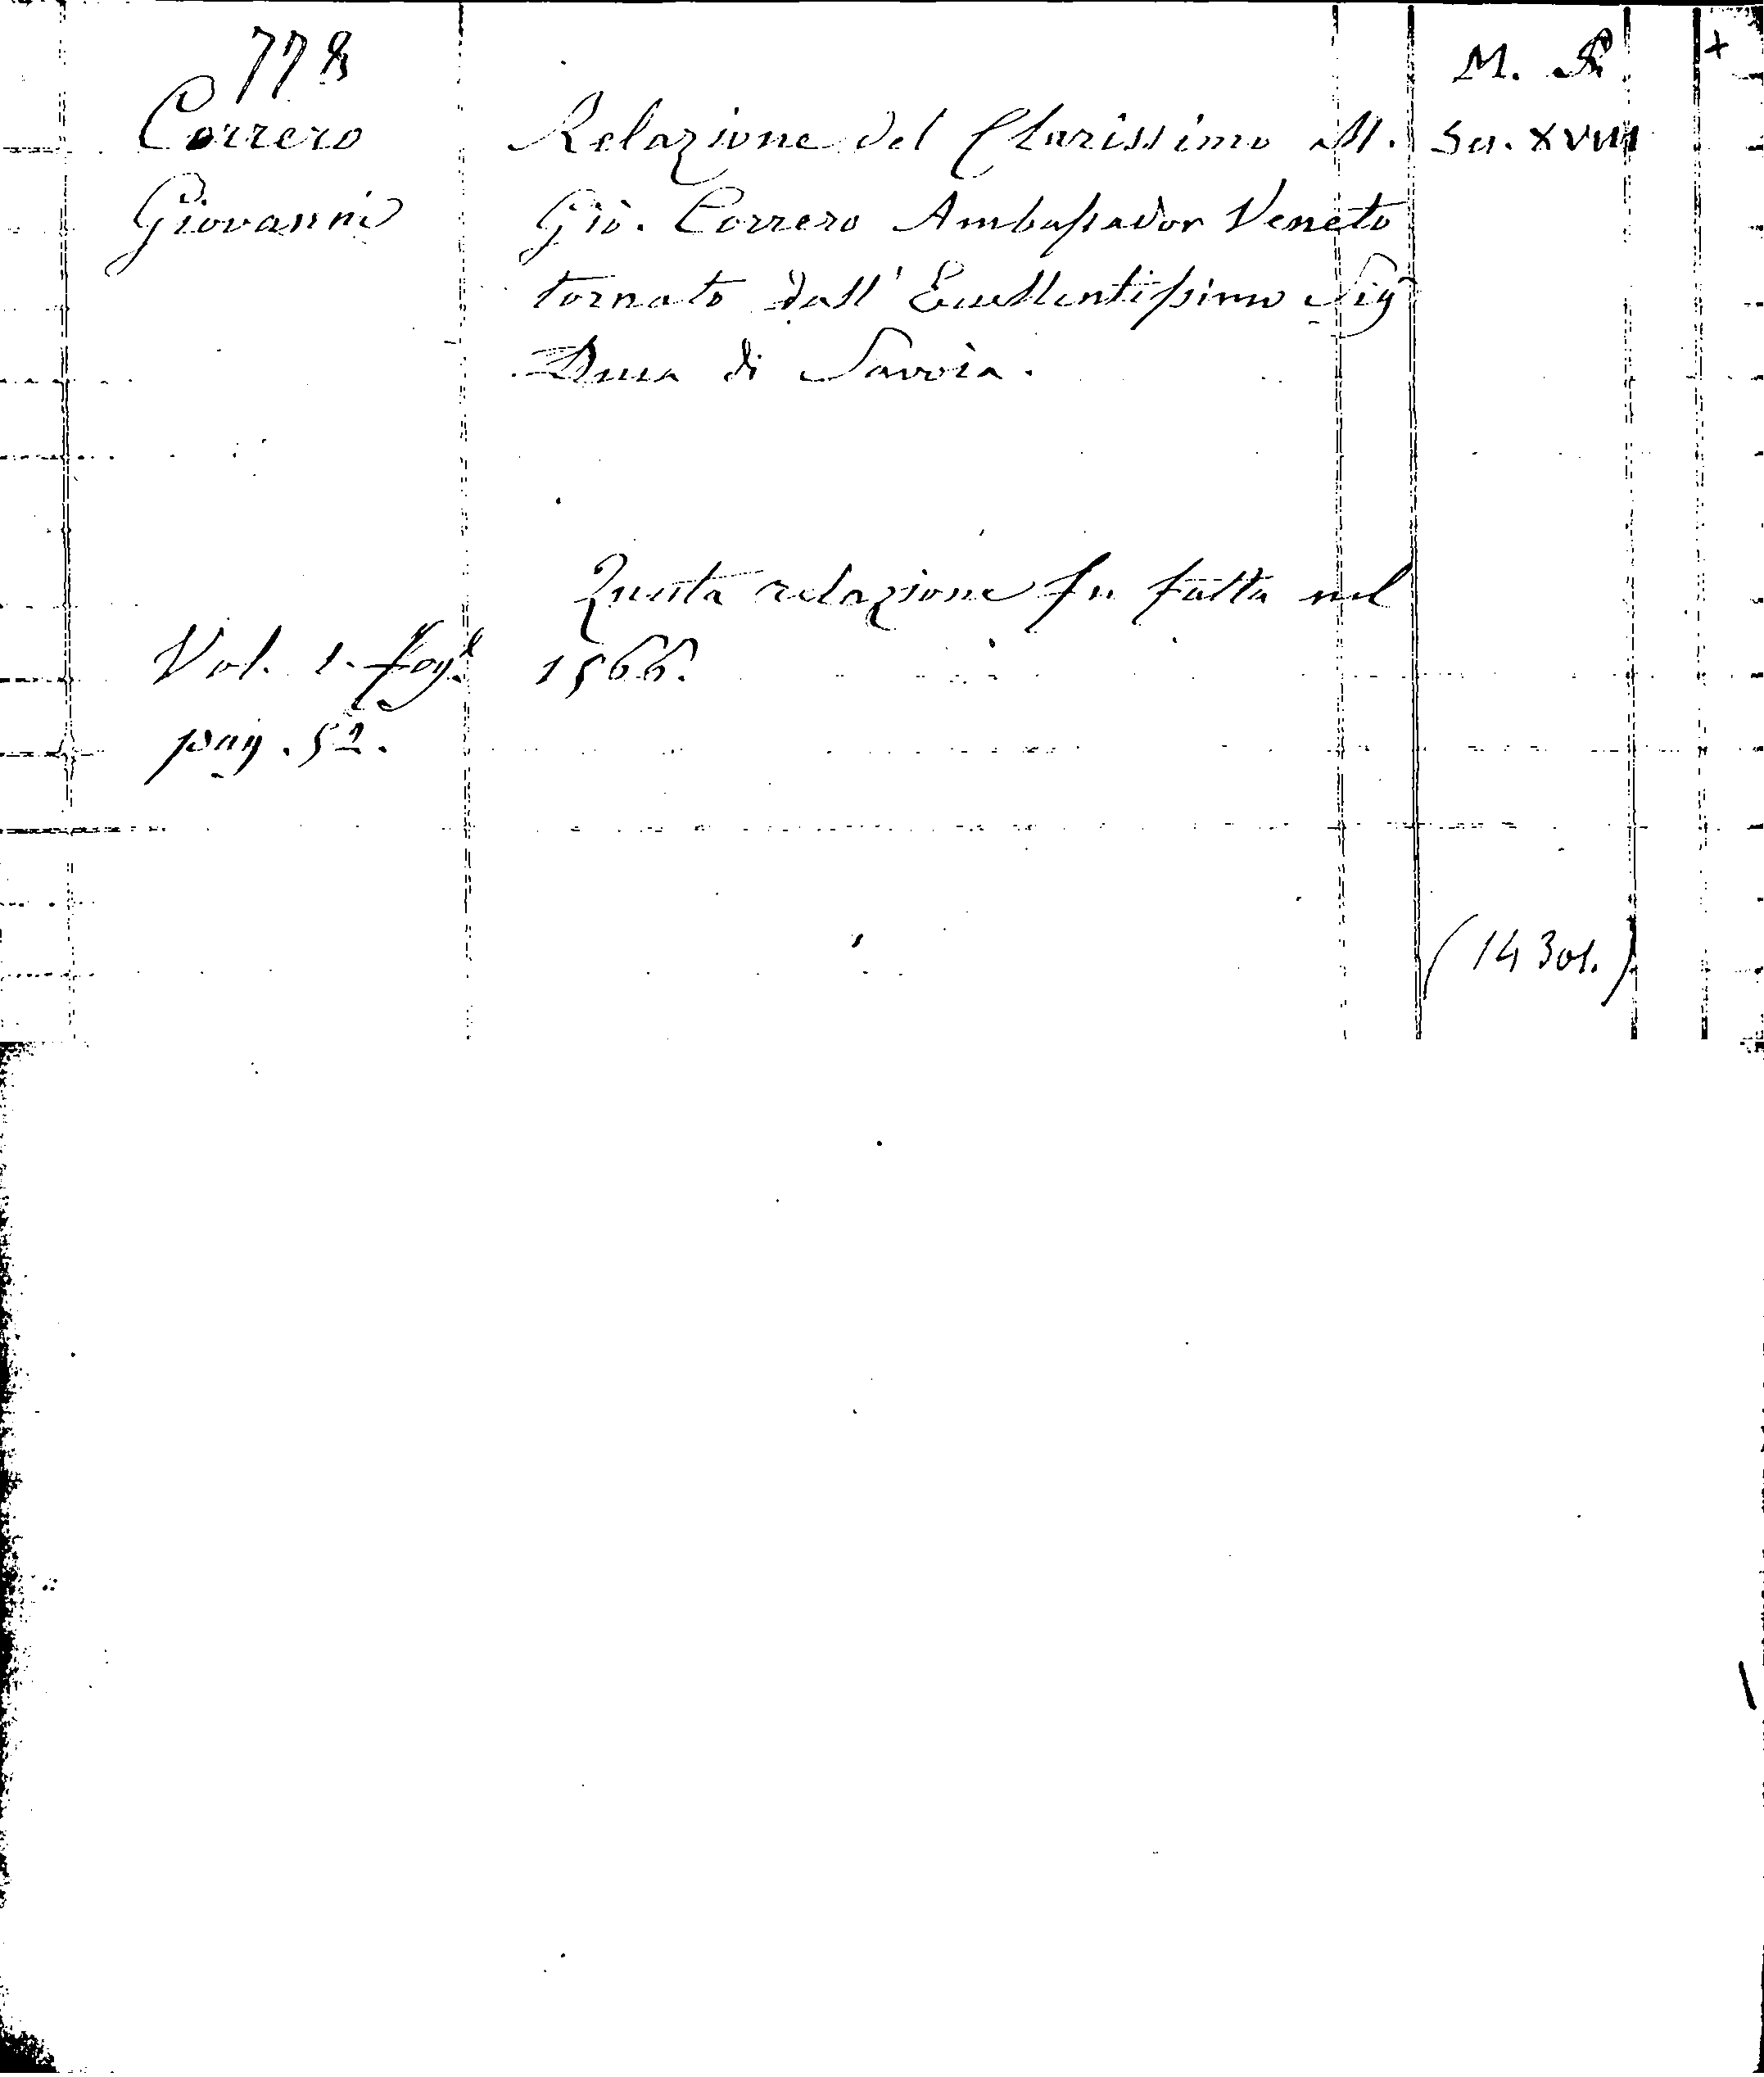 778
M. R +
Correro
Giovanni
Relazione del Clarissimo M.
Giò. Correro Ambassador Veneto
tornato dall' Eccellentissimo Sig.r
Duca di Savoia.
Sec. XVIII
Questa relazione fu fatta nel
1566.
Vol. 1. fogl.
pag. 52.
(14301.)